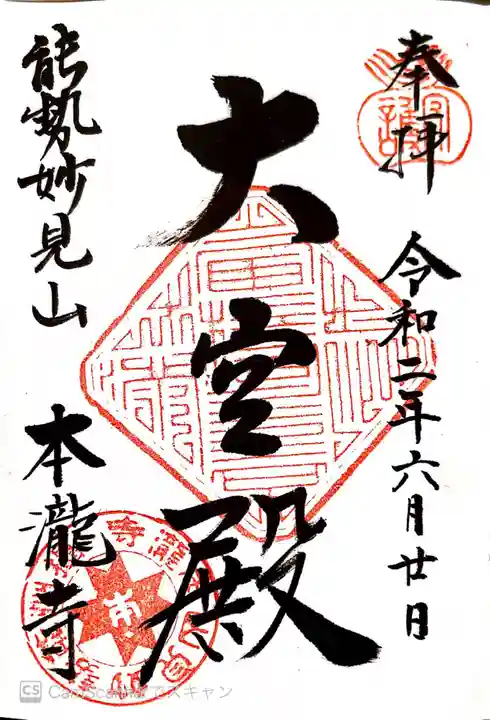 奉拝
令和二年六月廿日
大空殿
能勢妙見山
本瀧寺
CS CamScannerでスキャン